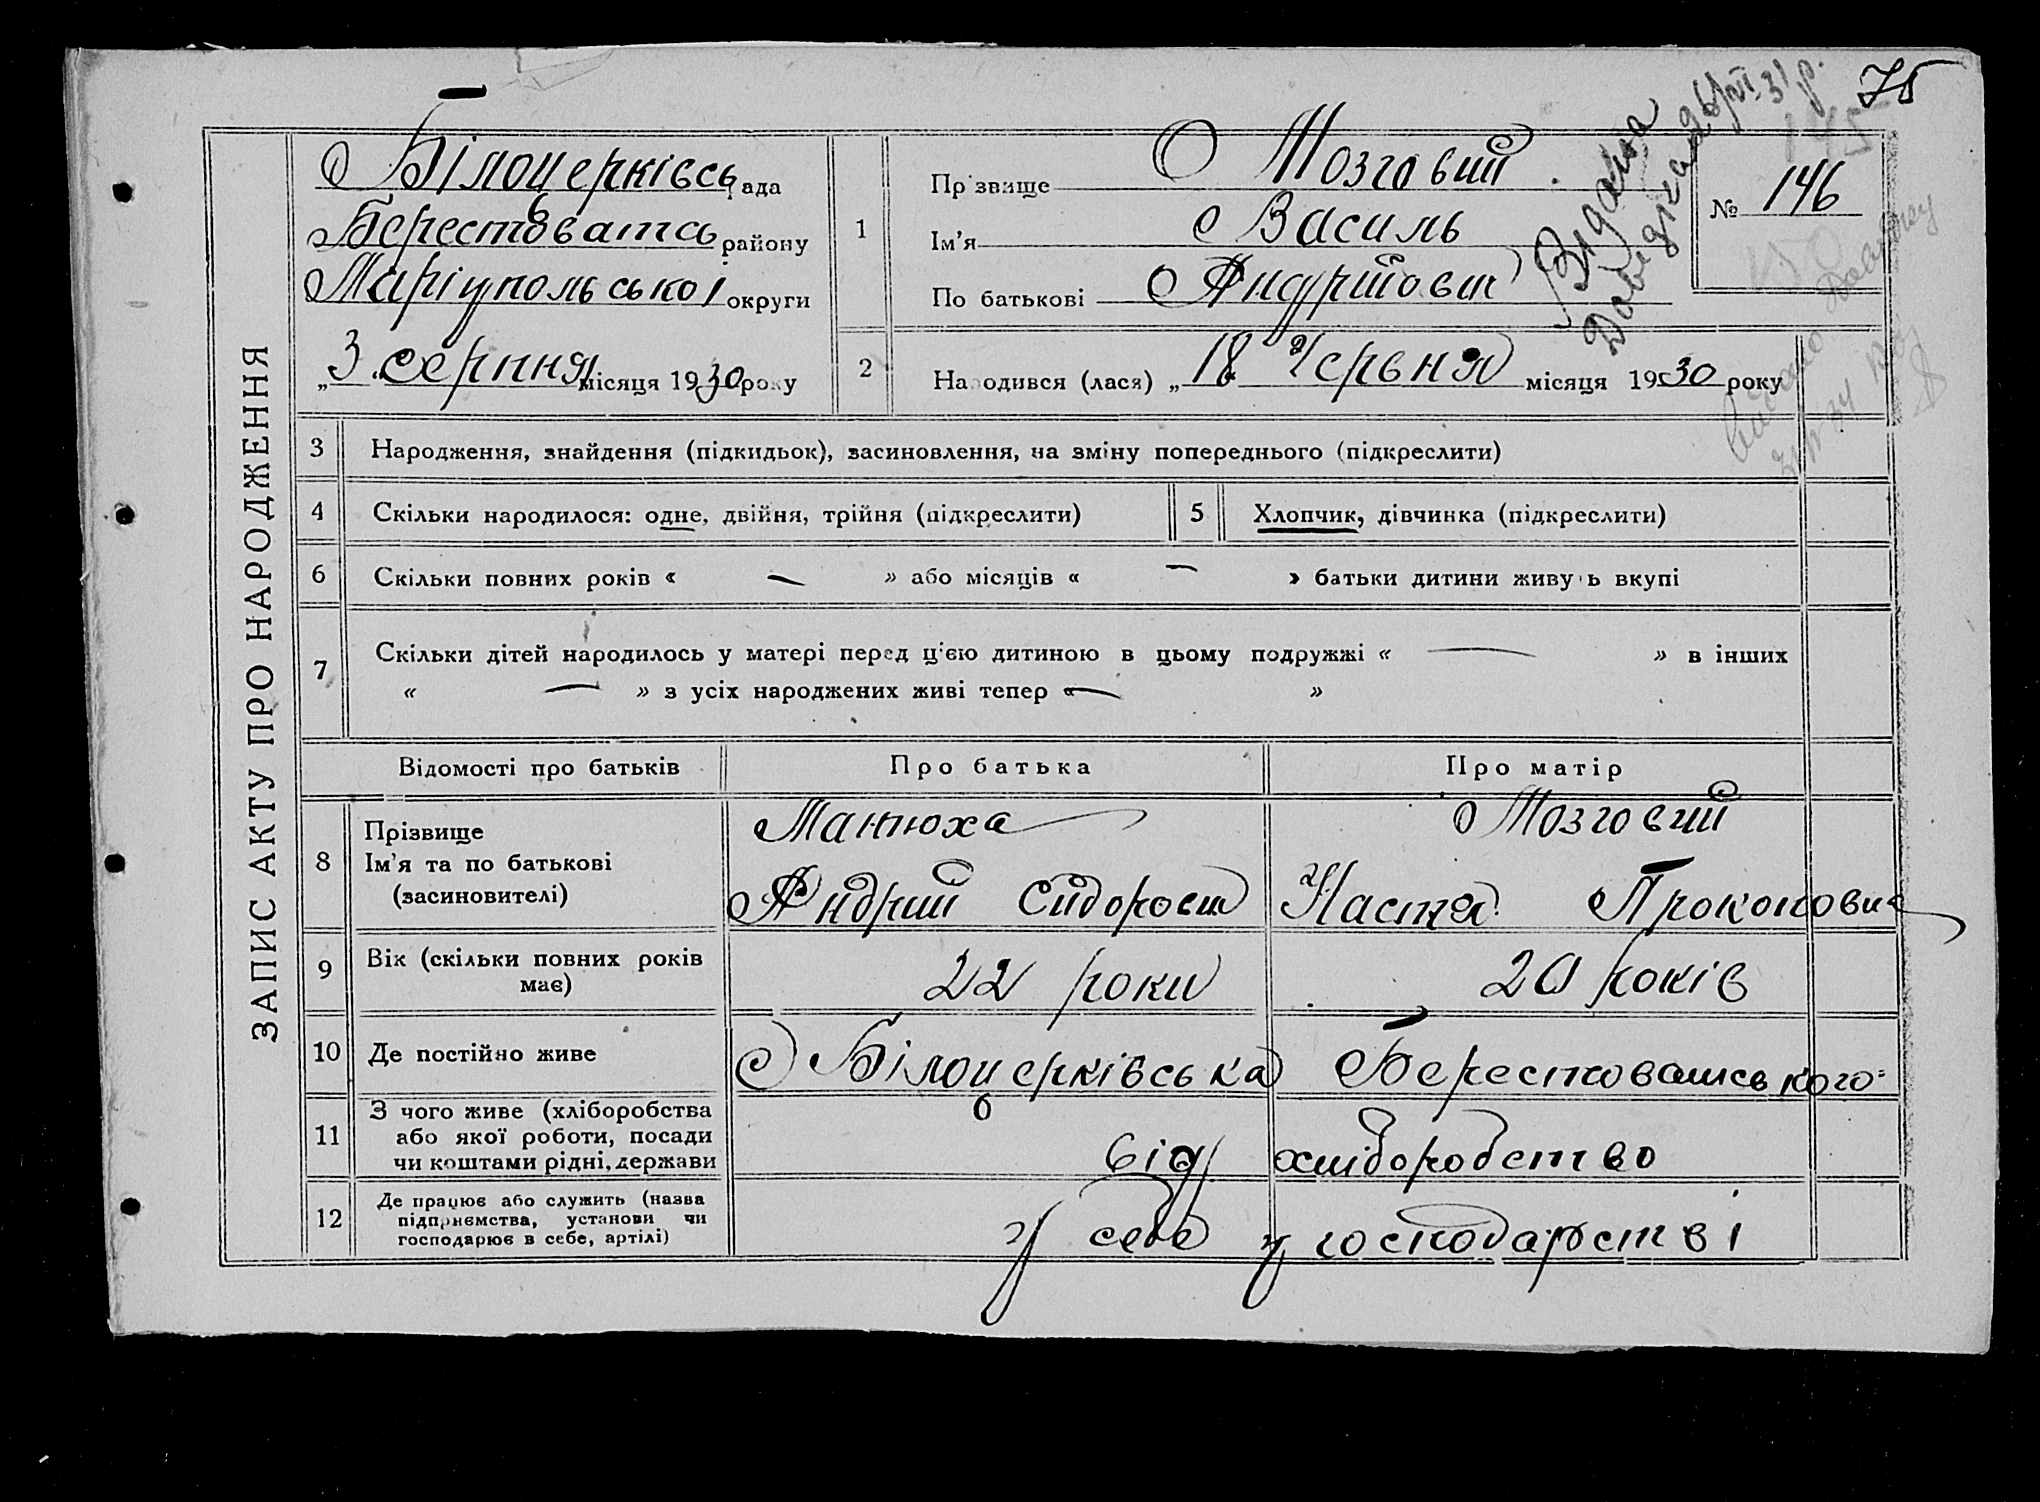 75
145
Видана
Довідка 26/VI 31 р.
ЗАПИС АКТУ ПРО НАРОДЖЕННЯ
Білоцерківсь рада
Берестоватсь району
Маріупольської округи
„3" серпня місяця 1930 року
1
Прізвище Мозговий
Ім'я Василь
По батькові Андрійович
№ 146
2
Народився (лася) „18" Червня місяця 1930 року
3 Народження, знайдення (підкидьок), засиновлення, на зміну попереднього (підкреслити)
4 Скільки народилося: одне, двійня, трійня (підкреслити)
5 Хлопчик, дівчинка (підкреслити)
6 Скільки повних років « — » або місяців « — » батьки дитини живуть вкупі
7 Скільки дітей народилось у матері перед ц'єю дитиною в цьому подружжі « — » в інших
« — » з усіх народжених живі тепер « — »
Відомості про батьків Про батька Про матір
8
Прізвище
Ім'я та по батькові
(засиновителі)
Манюха
Андрий Сидорович
Мозговий
Настя Прокоповна
9 Вік (скільки повних років
має)
22 роки
20 років
10 Де постійно живе
Білоцерківська Берестоватського
11 З чого живе (хліборобства
або якої роботи, посади
чи коштами рідні, держави
від хліборобство
12 Де працює або служить (назва
підприємства, установи чи
господарює в себе, артілі)
у себе у господарстві